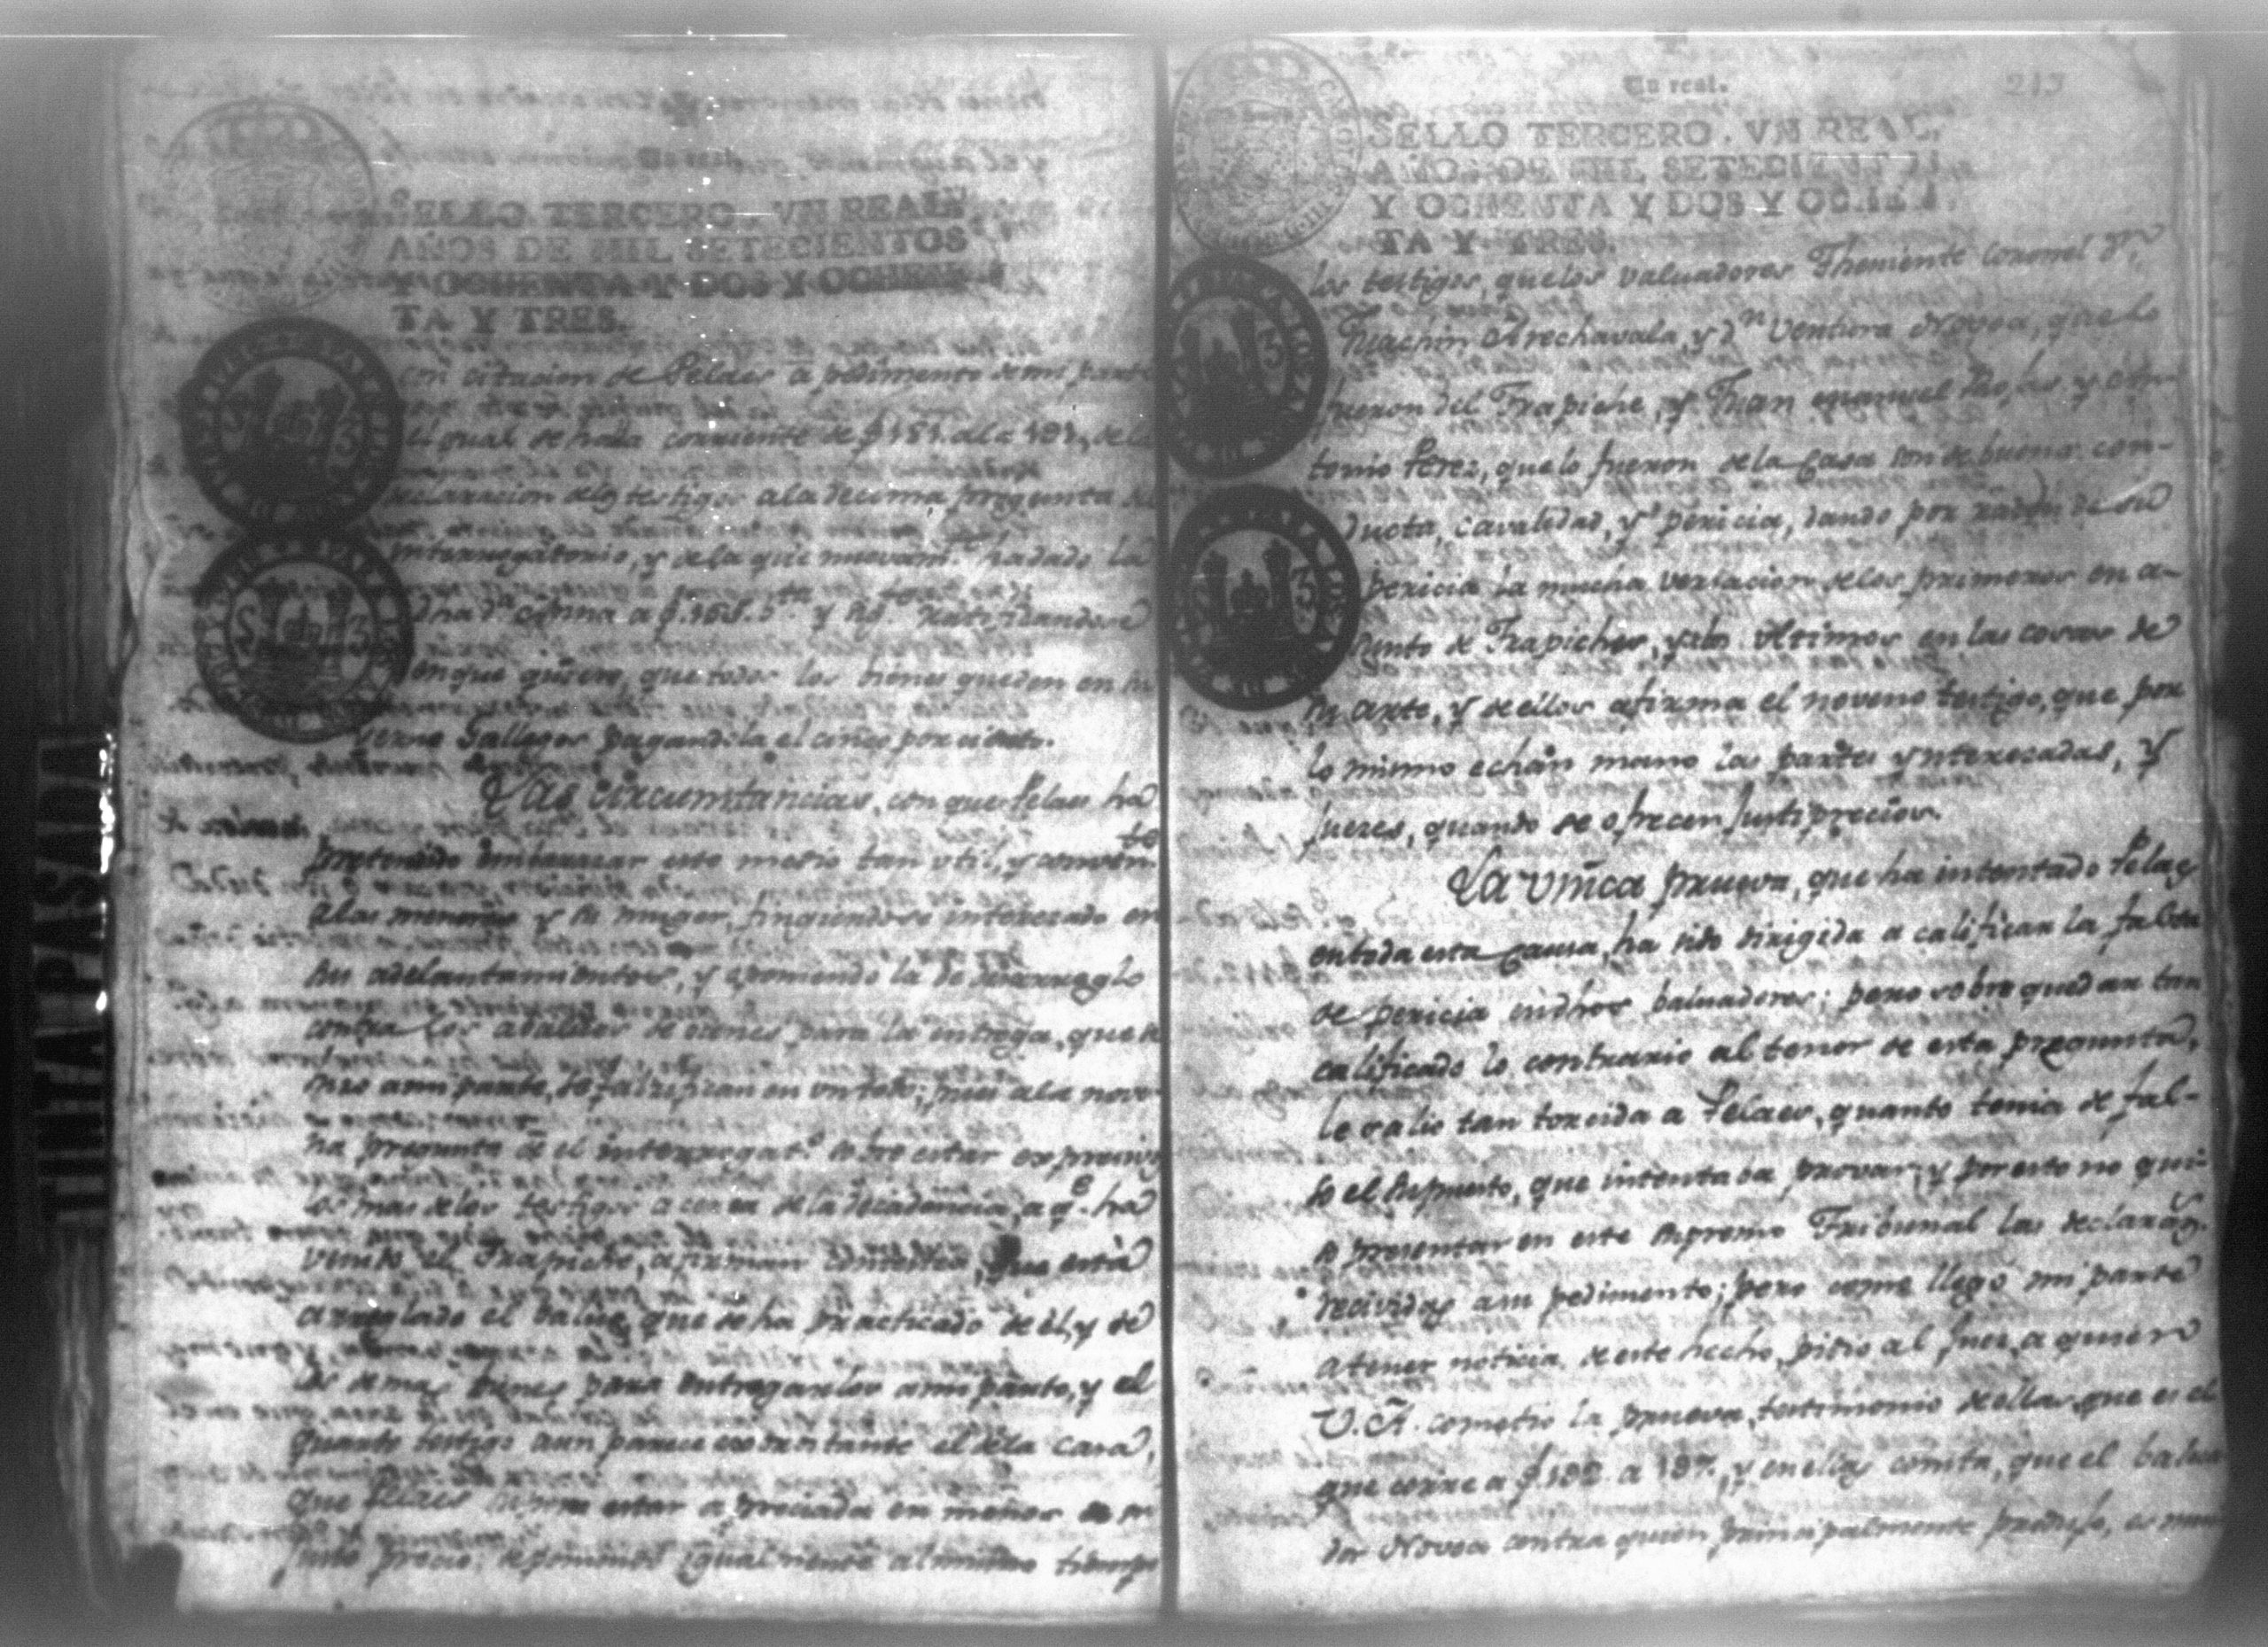 Un real.
SELLO TERCERO. VN REAL,
AÑOS DE MIL SETECIENTOS
Y OCHENTA Y DOS Y OCHEN
TA Y TRES.
con citacion de Pelaes a pedimento de mi parte
el qual se halla corriente de f 181. a la 191, de la
declaracion de los testigos a la decima pregunta del
interrogatorio, y de la que nuevam.te ha dado la
dha d.a a f. 168. ratificandose
en que quiere, que todos los bienes queden en su
Gallegos pagandola el cinco por ciento.
Las circumstancias, con que Pelaes ha
pretendido embarazar este medio tan util, y conven.te
a las menores y su muger, fingiendose interezado en
su adelantamientos, y oponiendo la de desarreglo
contra los abaluos de bienes para la entrega, que se
hizo a mi parte, se falsifican en un todo; pues a la nove
na pregunta de el interrogat.o sobre estar expresivos
los mas de los testigos acerca de la decadencia, a q.e ha
venido el Trapiche, afirman contestes, que està
arreglado el baluo, que se ha practicado de èl, y de
los demas bienes para entregarlos a mi parte, y el
quarto testigo aun parece el de la casa,
que Pelaes supone estar apreciada en menos de su
justo precio: deponiendo igualmente al mismo tiempo
Un real.
213
SELLO TERCERO. VN REAL,
AÑOS DE MIL SETECIENTOS
Y OCHENTA Y DOS Y OCHEN
TA Y TRES.
los testigos, que los valuadores Theniente Coronel
Juachin Arechavala, y d.n Ventura Novoa, que lo
fueron del Trapiche, y Juan Manuel Rojas y An-
tonio Perez, que lo fueron de la Casa son de buena con-
ducta, cavalidad, y pericia, dando por razon de su
pericia la mucha versacion de los primeros en a-
sunto de Trapiches, y los ultimos en las cosas de
su arte, y de ellos afirma el noveno testigo, que por
lo mismo echàn mano las partes ynterezadas, y
Jueces, quando se ofrecen Justiprecios.
La vnica prueva, que ha intentado Pelaes
en toda esta causa, ha sido dirigida a calificar la falta
de pericia en dhos baluadores: pero sobre quedar tan
calificado lo contrario al tenor de esta pregunta,
le salio tan torcida a Pelaes, quanto tenia de fal-
so el supuesto, que intentava provar; y por esto no qui-
so presentar en este supremo Tribunal las declaràs.
recividas a su pedimento; pero como llegó mi parte
a tener noticia de este hecho, pidio al Juez, a quien
V. A. cometio la prueva, testimonio de ellas, que es el
que corre a f. 192. a 197., y en ellas consta, que el balua
dor Novoa contra quien principalmente produjo, es muy